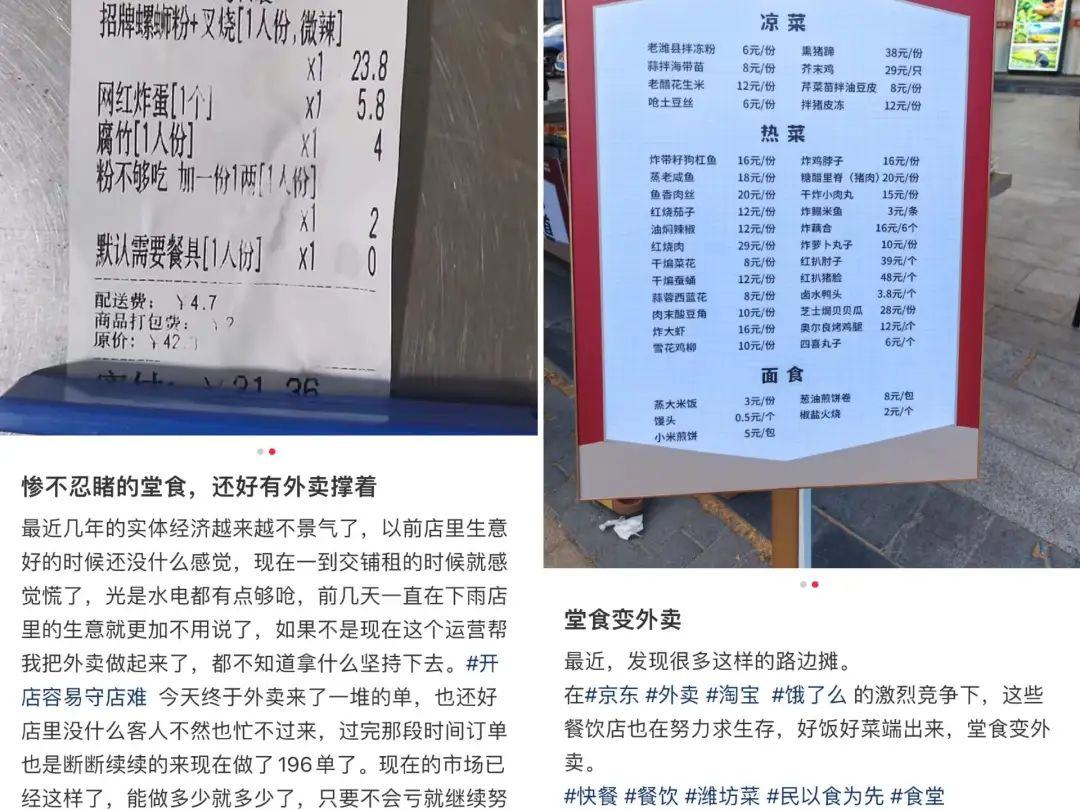 招牌螺蛳粉+叉烧[1人份,微辣]
x1 23.8
网红炸蛋[1个] x1 5.8
腐竹[1人份] x1 4
粉不够吃 加一份1两[1人份]
x1 2
默认需要餐具[1人份] x1 0
配送费: ￥4.7
商品打包费: ￥2
原价: ￥42.
31.36
惨不忍睹的堂食，还好有外卖撑着
最近几年的实体经济越来越不景气了，以前店里生意
好的时候还没什么感觉，现在一到交铺租的时候就感
觉慌了，光是水电都有点够呛，前几天一直在下雨店
里的生意就更加不用说了，如果不是现在这个运营帮
我把外卖做起来了，都不知道拿什么坚持下去。#开
店容易守店难 今天终于外卖来了一堆的单，也还好
店里没什么客人不然也忙不过来，过完那段时间订单
也是断断续续的来现在做了196单了。现在的市场已
经这样了，能做多少就多少了，只要不会亏就继续努
凉菜
老潍县拌冻粉 6元/份 熏猪蹄 38元/份
蒜拌海带苗 8元/份 芥末鸡 29元/只
老醋花生米 12元/份 芹菜苗拌油豆皮 8元/份
呛土豆丝 6元/份 拌猪皮冻 12元/份
热菜
炸带籽狗杠鱼 16元/份 炸鸡脖子 16元/份
蒸老咸鱼 18元/份 糖醋里脊（猪肉）20元/份
鱼香肉丝 20元/份 干炸小肉丸 15元/份
红烧茄子 12元/份 炸鳎米鱼 3元/条
油焖辣椒 12元/份 炸藕合 16元/6个
红烧肉 29元/份 炸萝卜丸子 10元/份
干煸菜花 8元/份 红扒肘子 39元/个
干煸蚕蛹 12元/份 红扒猪脸 48元/个
蒜蓉西蓝花 8元/份 卤水鸭头 3.8元/个
肉末酸豆角 10元/份 芝士焗贝贝瓜 28元/份
炸大虾 16元/份 奥尔良烤鸡腿 12元/个
雪花鸡柳 10元/份 四喜丸子 6元/个
面食
蒸大米饭 3元/份 葱油煎饼卷 8元/包
馒头 0.5元/个 椒盐火烧 2元/个
小米煎饼 5元/包
堂食变外卖
最近，发现很多这样的路边摊。
在#京东 #外卖 #淘宝 #饿了么 的激烈竞争下，这些
餐饮店也在努力求生存，好饭好菜端出来，堂食变外
卖。
#快餐 #餐饮 #潍坊菜 #民以食为先 #食堂